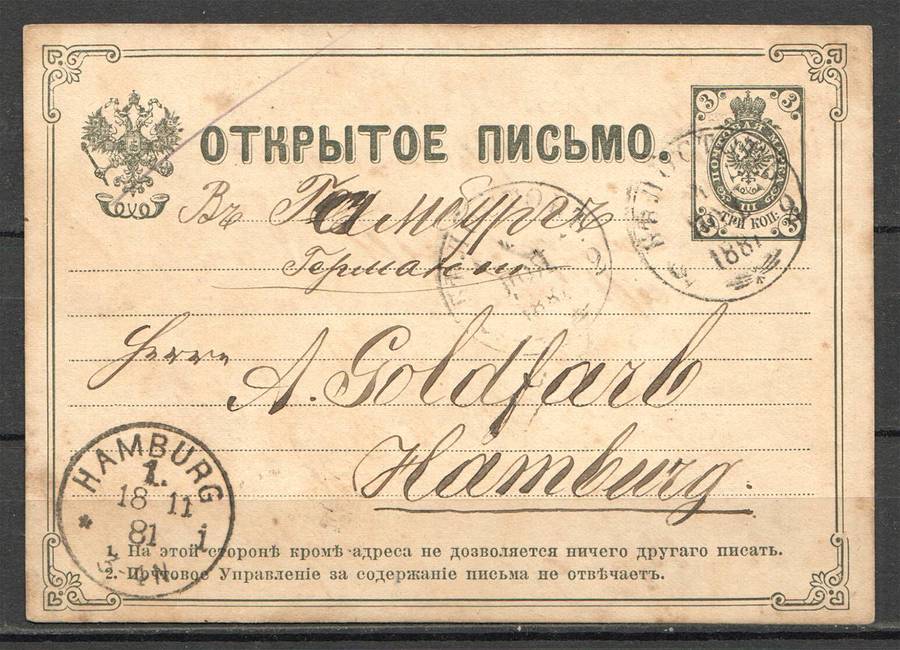 ОТКРЫТОЕ ПИСЬМО.
3 3
ПОЧТОВАЯ МАРКА
III
ТРИ КОП.
3 3
1881
Въ Гамбургъ
Германiи
1881
Herrn
A. Goldfarb
Hamburg.
HAMBURG
1.
18 11
81 i
1. На этой сторонѣ кромѣ адреса не дозволяется ничего другаго писать.
2. Почтовое Управленіе за содержаніе письма не отвѣчаетъ.